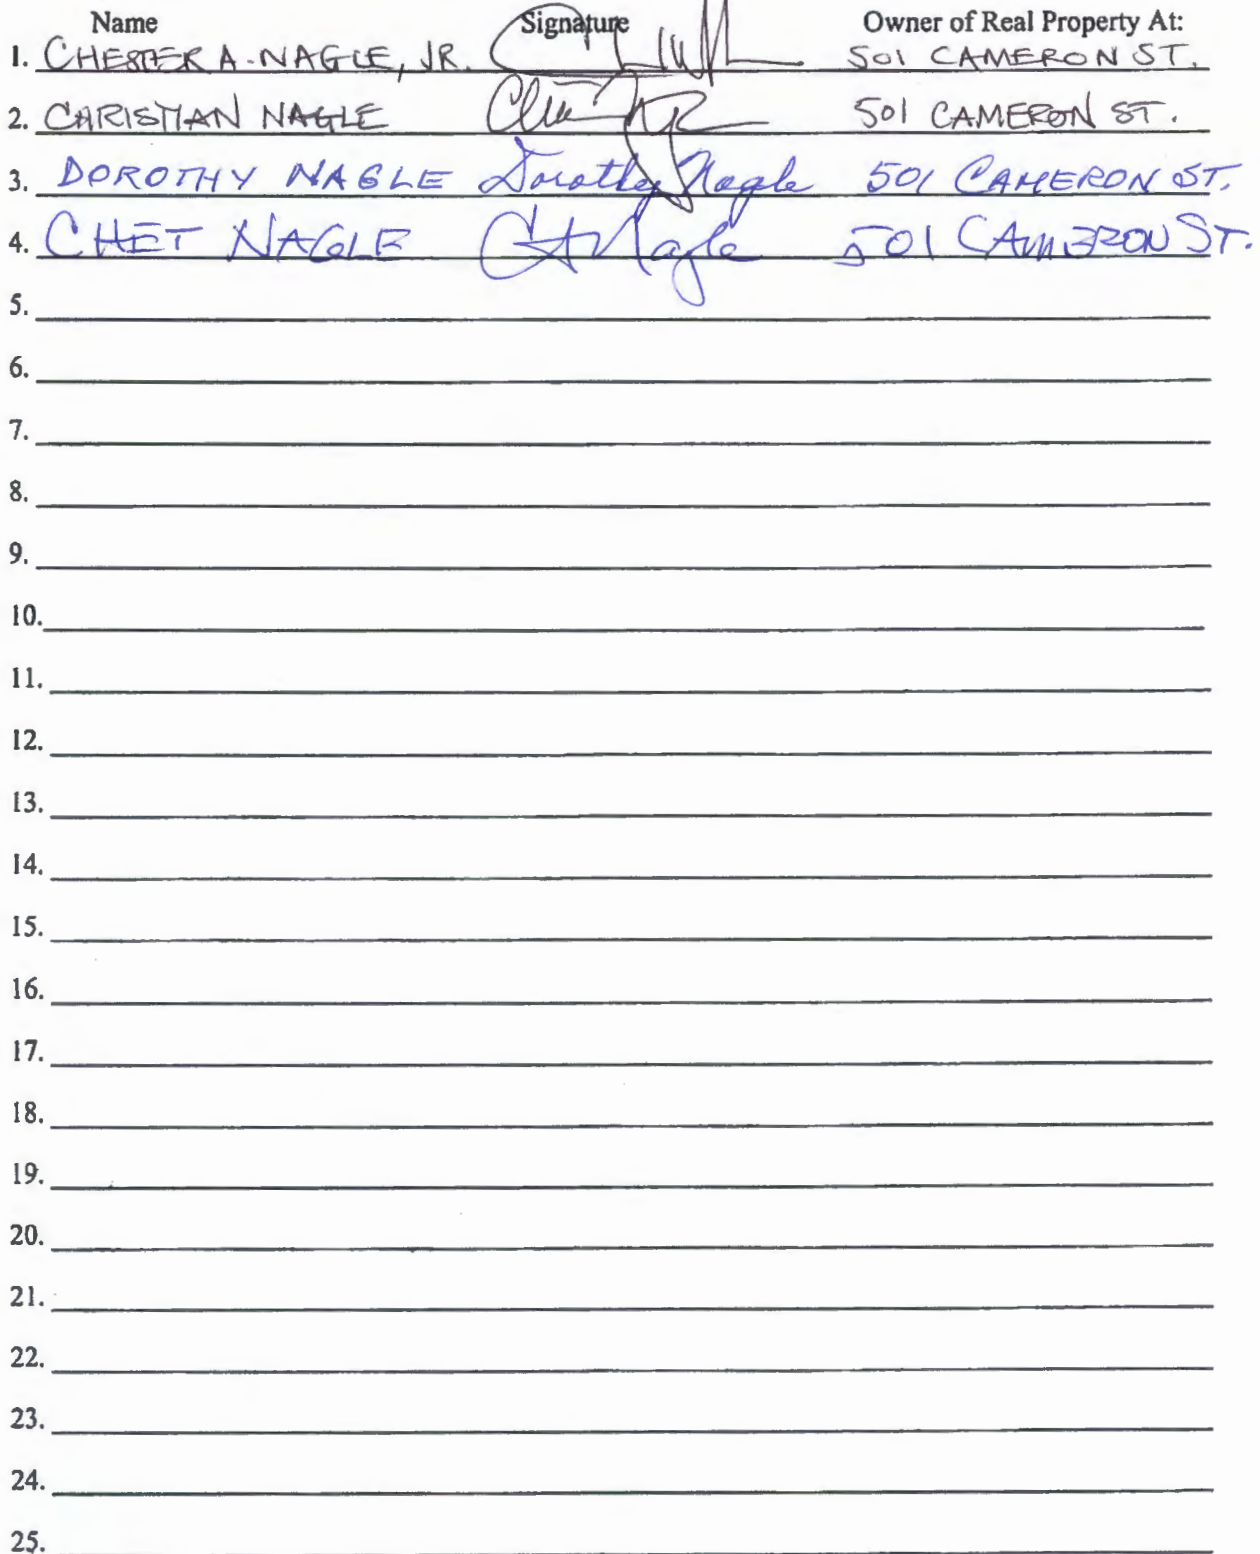 Name Signature Owner of Real Property At:
1. CHESTER A. NAGLE, JR. 501 CAMERON ST.
2. CHRISTIAN NAGLE 501 CAMERON ST.
3. DOROTHY NAGLE Dorothy Nagle 501 CAMERON ST.
4. CHET NAGLE CANagle 501 CAMERON ST.
5.
6.
7.
8.
9.
10.
11.
12.
13.
14.
15.
16.
17.
18.
19.
20.
21.
22.
23.
24.
25.